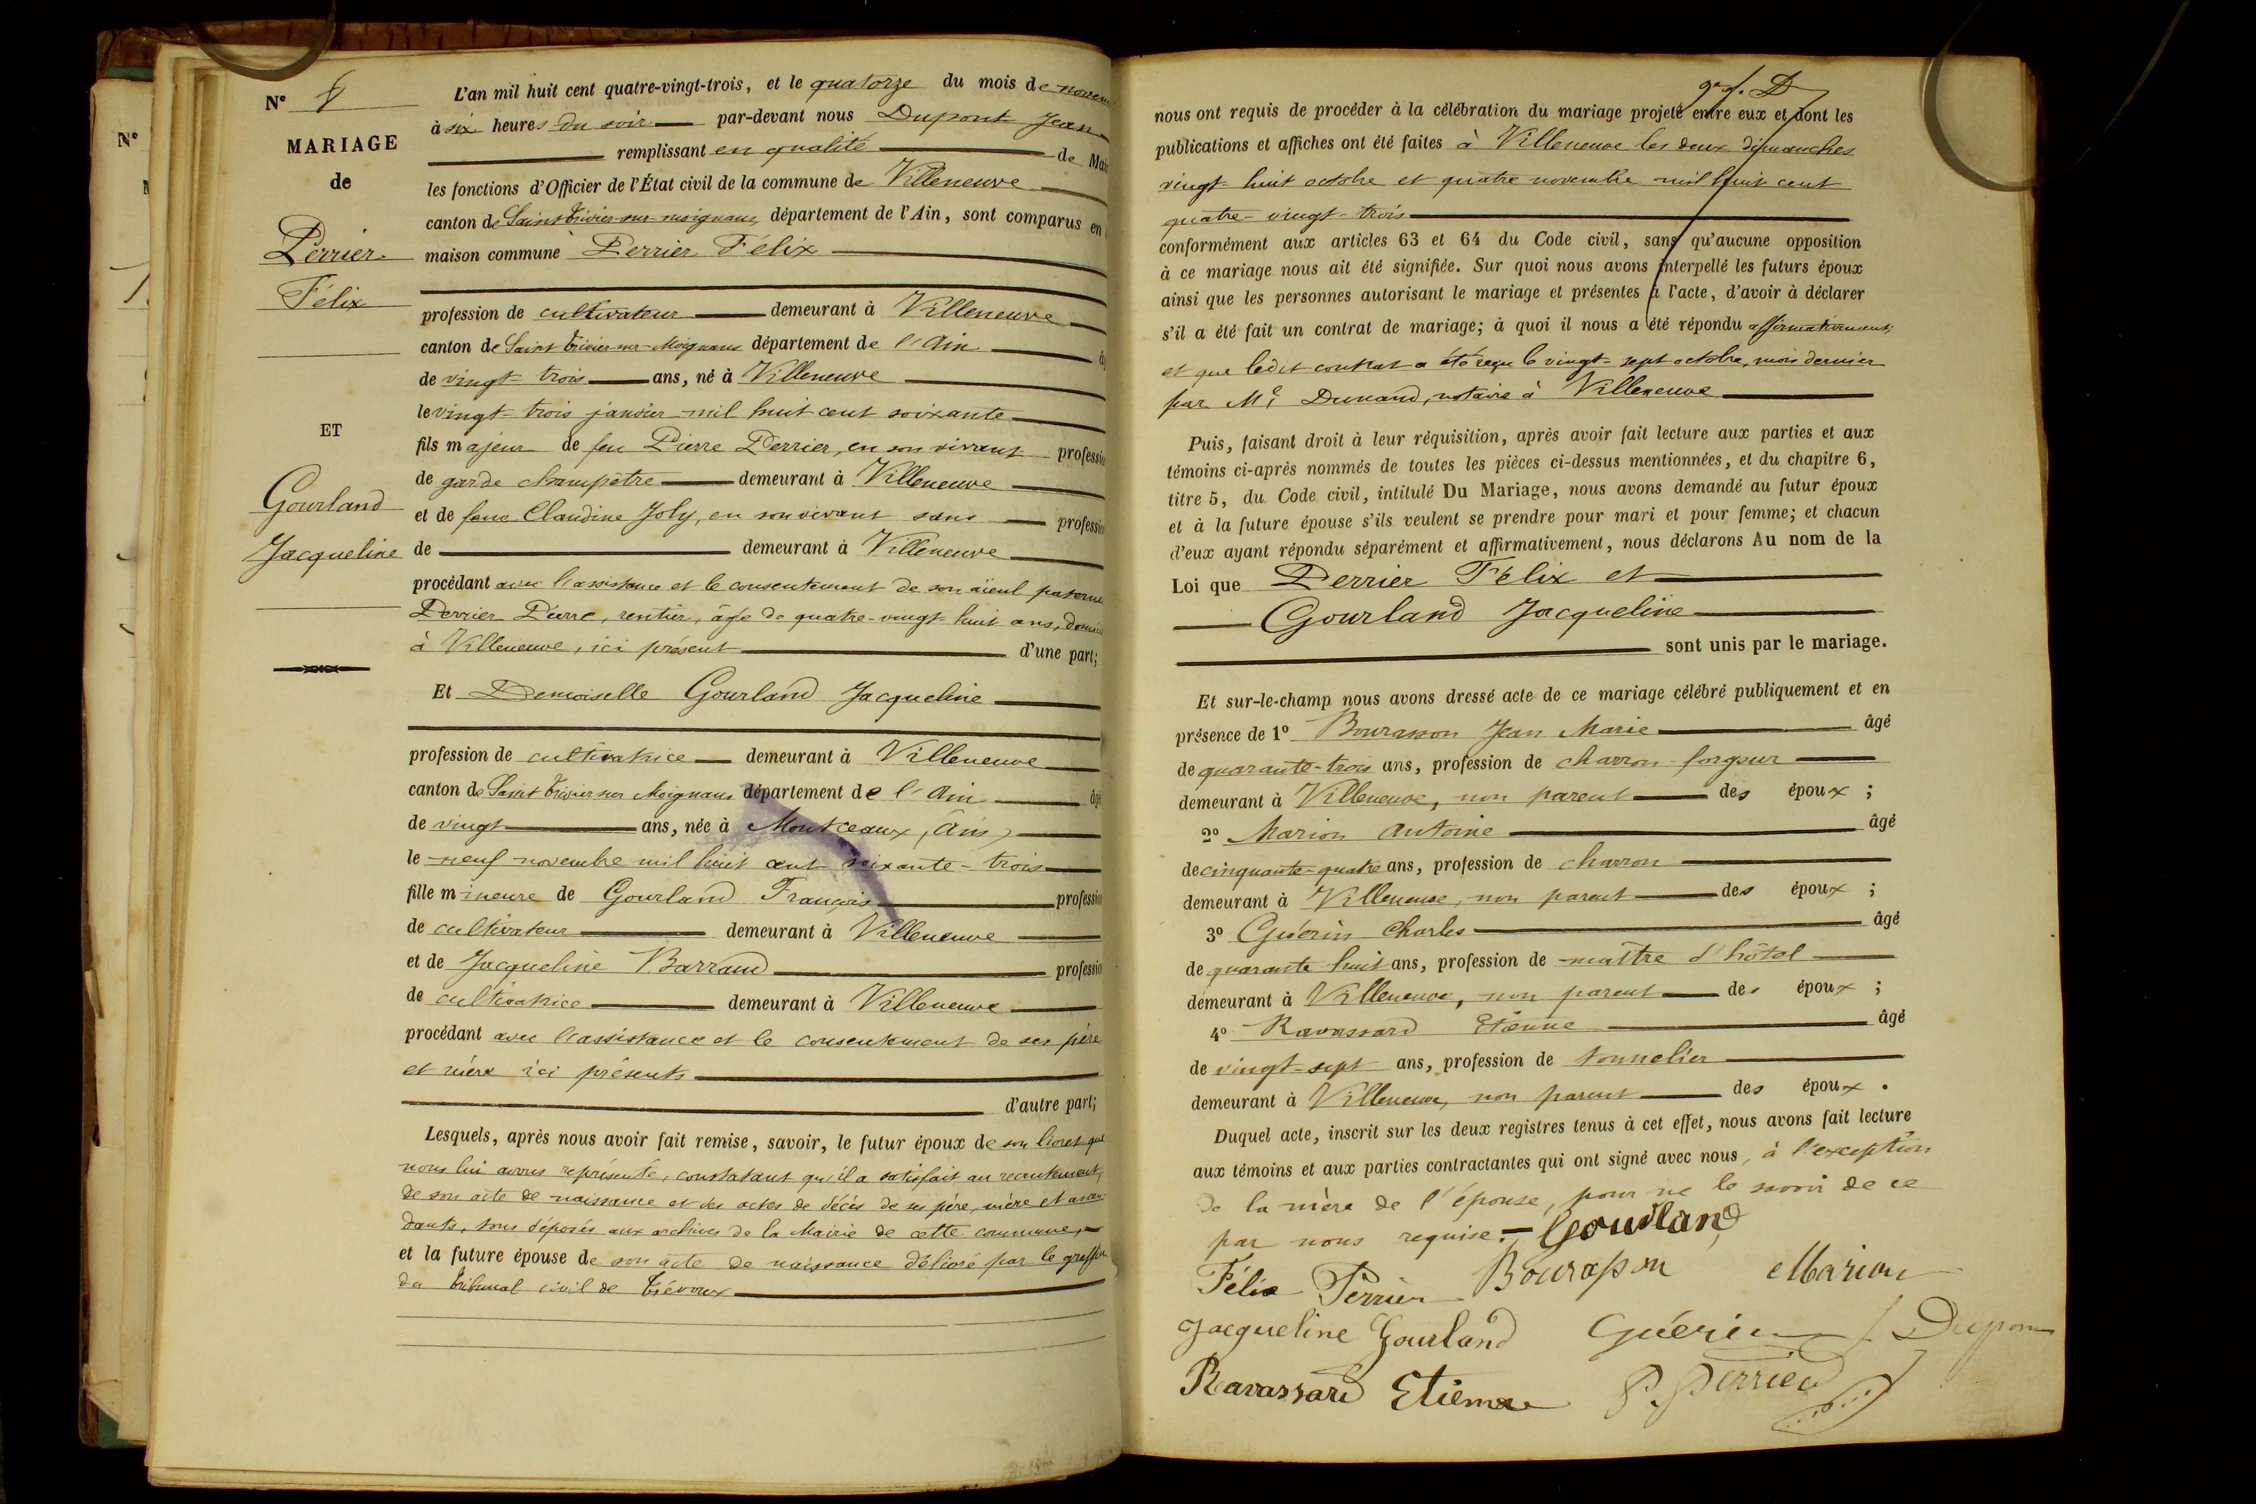 N° 8
MARIAGE
de
Perrier
Félix
ET
Gourland
Jacqueline
L'an mil huit cent quatre-vingt-trois, et le quatorze du mois de novem
à six heures du soir par-devant nous Dupont Jean
remplissant en qualité de Mai
les fonctions d'Officier de l'État civil de la commune de Villeneuve
canton de Saint Trivier sur moignans, département de l'Ain, sont comparus en
maison commune Perrier Félix
profession de cultivateur demeurant à Villeneuve
canton de Saint Trivier sur Moignans département de l'Ain âg
de vingt-trois ans, né à Villeneuve
le vingt-trois janvier mil huit cent soixante
fils majeur de feu Pierre Perrier, en son vivant profession
de garde champêtre demeurant à Villeneuve
et de feue Claudine Joly, en son vivant sans profession
de demeurant à Villeneuve
procédant avec l'assistance et le consentement de son aïeul paterne
Perrier Pierre, rentier, âgé de quatre-vingt-huit ans, domici
à Villeneuve, ici présent d'une part;
Et Demoiselle Gourland Jacqueline
profession de cultivatrice demeurant à Villeneuve
canton de Saint Trivier sur Moignans département de l'Ain âgé
de vingt ans, née à Montceaux, (Ain)
le neuf novembre mil huit cent soixante-trois
fille mineure de Gourland François profession
de cultivateur demeurant à Villeneuve
et de Jacqueline Barraud profession
de cultivatrice demeurant à Villeneuve
procédant avec l'assistance et le consentement de ses père
et mère ici présents
d'autre part;
Lesquels, après nous avoir fait remise, savoir, le futur époux de son livret que
nous lui avons représenté, constatant qu'il a satisfait au recrutement,
de son acte de naissance et des actes de décès de ses père, mère et ascen
dants, tous déposés aux archives de la Mairie de cette commune,
et la future épouse de son acte de naissance délivré par le greffier
du tribunal civil de Trévoux
nous ont requis de procéder à la célébration du mariage projeté entre eux et dont les
publications et affiches ont été faites à Villeneuve les deux dimanches
vingt-huit octobre et quatre novembre mil huit cent
quatre-vingt-trois
conformément aux articles 63 et 64 du Code civil, sans qu'aucune opposition
à ce mariage nous ait été signifiée. Sur quoi nous avons interpellé les futurs époux
ainsi que les personnes autorisant le mariage et présentes à l'acte, d'avoir à déclarer
s'il a été fait un contrat de mariage; à quoi il nous a été répondu affirmativement,
et que ledit contrat a été reçu le vingt-sept octobre, mois dernier
par Me Dunand, notaire à Villeneuve
Puis, faisant droit à leur réquisition, après avoir fait lecture aux parties et aux
témoins ci-après nommés de toutes les pièces ci-dessus mentionnées, et du chapitre 6,
titre 5, du Code civil, intitulé Du Mariage, nous avons demandé au futur époux
et à la future épouse s'ils veulent se prendre pour mari et pour femme; et chacun
d'eux ayant répondu séparément et affirmativement, nous déclarons Au nom de la
Loi que Perrier Félix et
Gourland Jacqueline
sont unis par le mariage.
Et sur-le-champ nous avons dressé acte de ce mariage célébré publiquement et en
présence de 1° Bourasson Jean Marie âgé
de quarante-trois ans, profession de charron forgeur
demeurant à Villeneuve, non parent des époux;
2° Marion Antoine âgé
de cinquante-quatre ans, profession de charron
demeurant à Villeneuve, non parent des époux;
3° Guérin Charles âgé
de quarante huit ans, profession de maître d'hôtel
demeurant à Villeneuve, non parent des époux;
4° Ravassard Etienne âgé
de vingt-sept ans, profession de tonnelier
demeurant à Villeneuve, non parent des époux.
Duquel acte, inscrit sur les deux registres tenus à cet effet, nous avons fait lecture
aux témoins et aux parties contractantes qui ont signé avec nous, à l'exception
de la mère de l'épouse, pour ne le savoir de ce
par nous requise. Gourland
Félix Perrier Bourasson Marion
Jacqueline Gourland Guérin J. Dupont
Ravassard Etienne P. Perrier